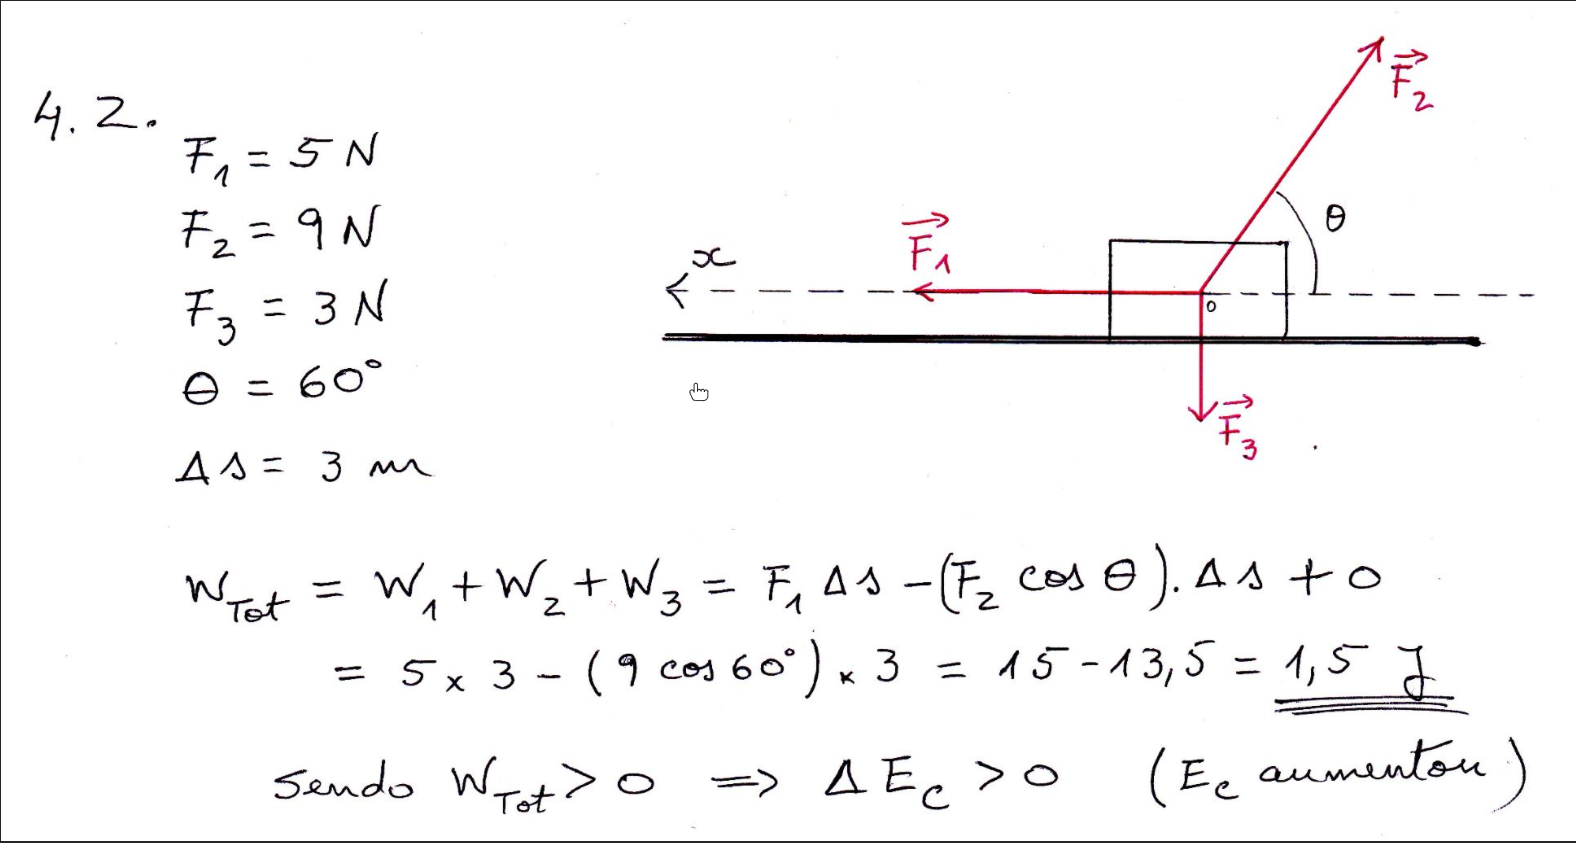 4.2.
F₁ = 5 N
F₂ = 9 N
F₃ = 3 N
θ = 60°
Δs = 3 m
F⃗₂
θ
F⃗₁
x
0
F⃗₃
W_Tot = W₁ + W₂ + W₃ = F₁ Δs - (F₂ cos θ). Δs + 0
= 5 x 3 - (9 cos 60°) x 3 = 15 - 13,5 = 1,5 J
Sendo W_Tot > 0 => Δ E_c > 0 (E_c aumentou)